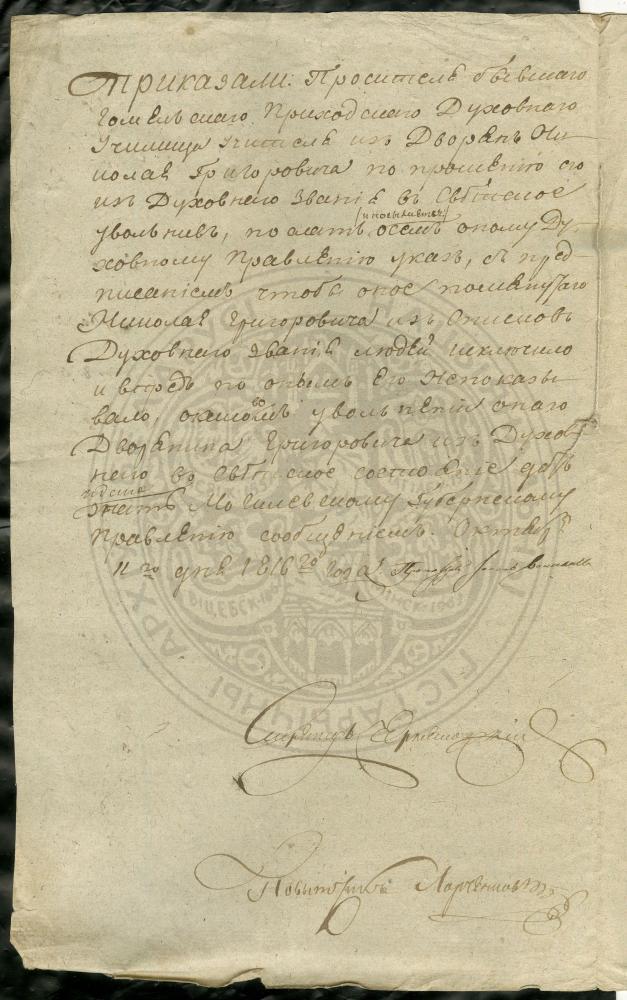 Приказали: Просителя бывшаго
Гомельскаго Приходскаго Духовнаго
Училища Учителя изъ Дворянъ Ни-
колая Григоровича по прошенію его
изъ Духовнаго Званія въ Свѣтское
уволнивъ, послать о семъ оному Ду-
ховному Правленію указъ, съ пред-
писаніемъ чтобъ оное помянутаго
Николая Григоровича изъ Списковъ
Духовнаго Званія людей исключило
и впредь по онымъ его непоказы-
вало, о каковомъ увольненіи онаго
Дворянина Григоровича изъ Духов-
наго въ Свѣтское состояніе дать
знать Могилевскому Губернскому
Правленію сообщеніемъ. Октября
11го дня 1816го года.
Секретарь
Повытчикъ
АРХ ГІСТАРЫЧНЫ